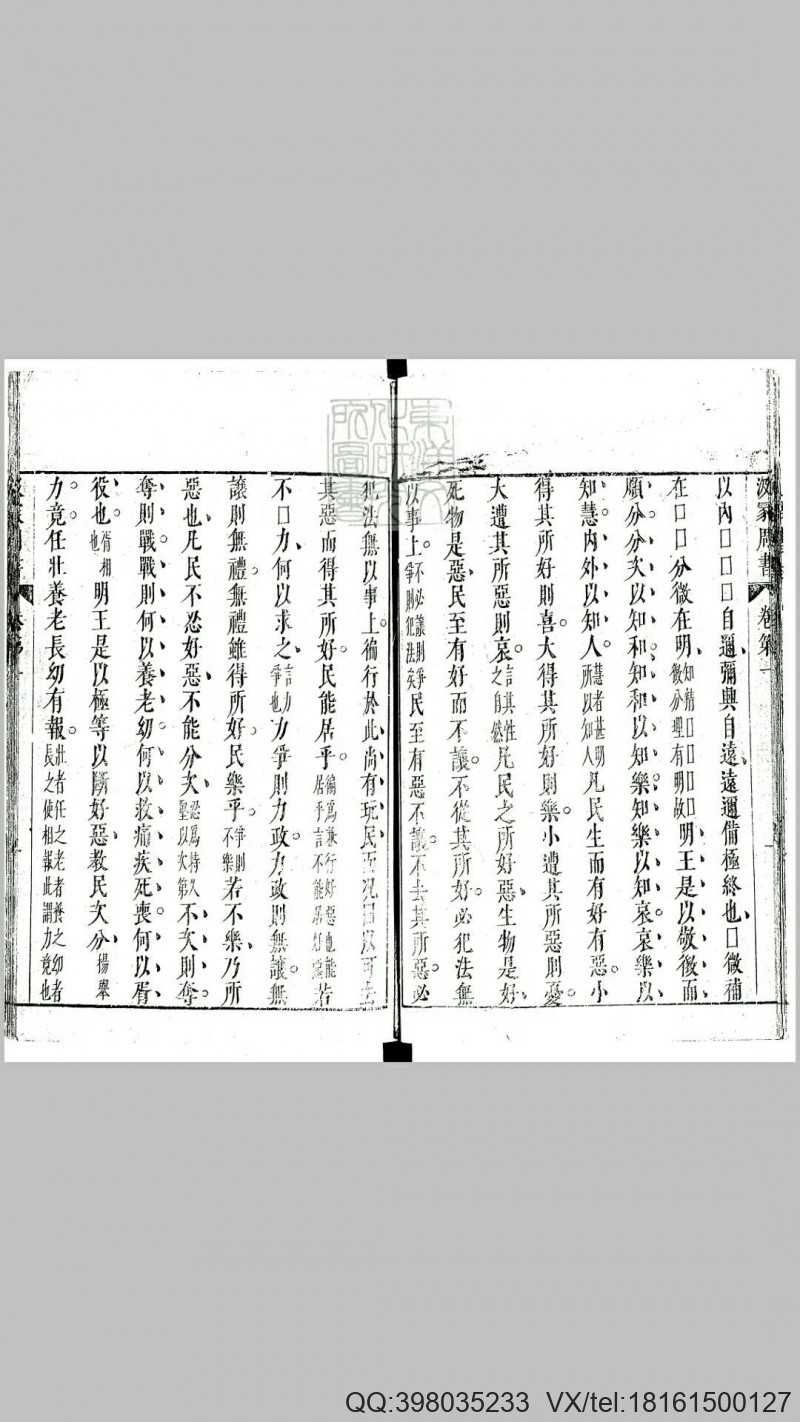 汲冢周書 卷第一
以內口口口自邇彌興自遠遠邇備極終也口微補
在口口分微在明知精口口口口微分理有明故明王是以敬微而
順分分次以知和知和以知樂知樂以知哀哀樂以
知慧內外以知人慧者甚明所以知人凡民生而有好有惡小
得其所好則喜大得其所好則樂小遭其所惡則憂
大遭其所惡則哀言其性之自然凡民之所好惡生物是好
死物是惡民至有好而不讓不從其所好必犯法無
以事上不必讓則爭爭則犯法矣民至有惡不讓不去其所惡必
犯法無以事上徧行於此尚有玩民而况曰以可去
其惡而得其所好民能居乎徧為兼行好惡也能居乎言不能居好讓若
不口力何以求之言力爭也力爭則力政力政則無讓無
讓則無禮無禮雖得所好民樂乎爭則不樂若不樂乃所
惡也凡民不忍好惡不能分次忍為持久聖以次第不次則奪
奪則戰戰則何以養老幼何以救痛疾死喪何以胥
役也胥相也明王是以極等以斷好惡教民次分揚舉
力竞任壯養老長幼有報壯者任之老者養之幼者長之使相報此謂力竞也
QQ:398035233 VX/tel:18161500127